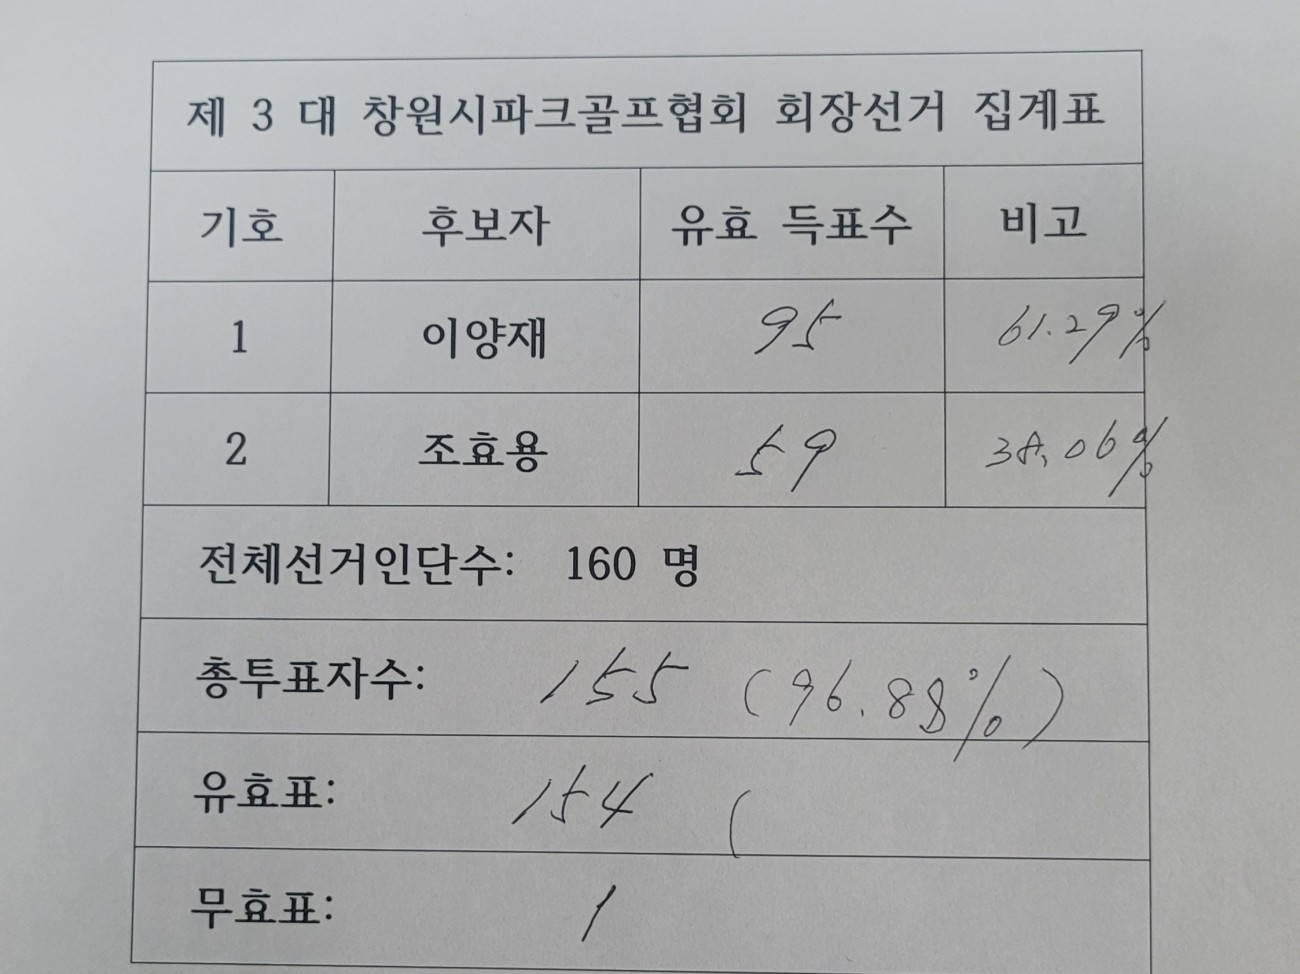 제 3 대 창원시파크골프협회 회장선거 집계표
기호 후보자 유효 득표수 비고
1 이양재 95 61.29%
2 조효용 59 38.06%
전체선거인단수: 160 명
총투표자수: 155 (96.88%)
유효표: 154 (
무효표: 1